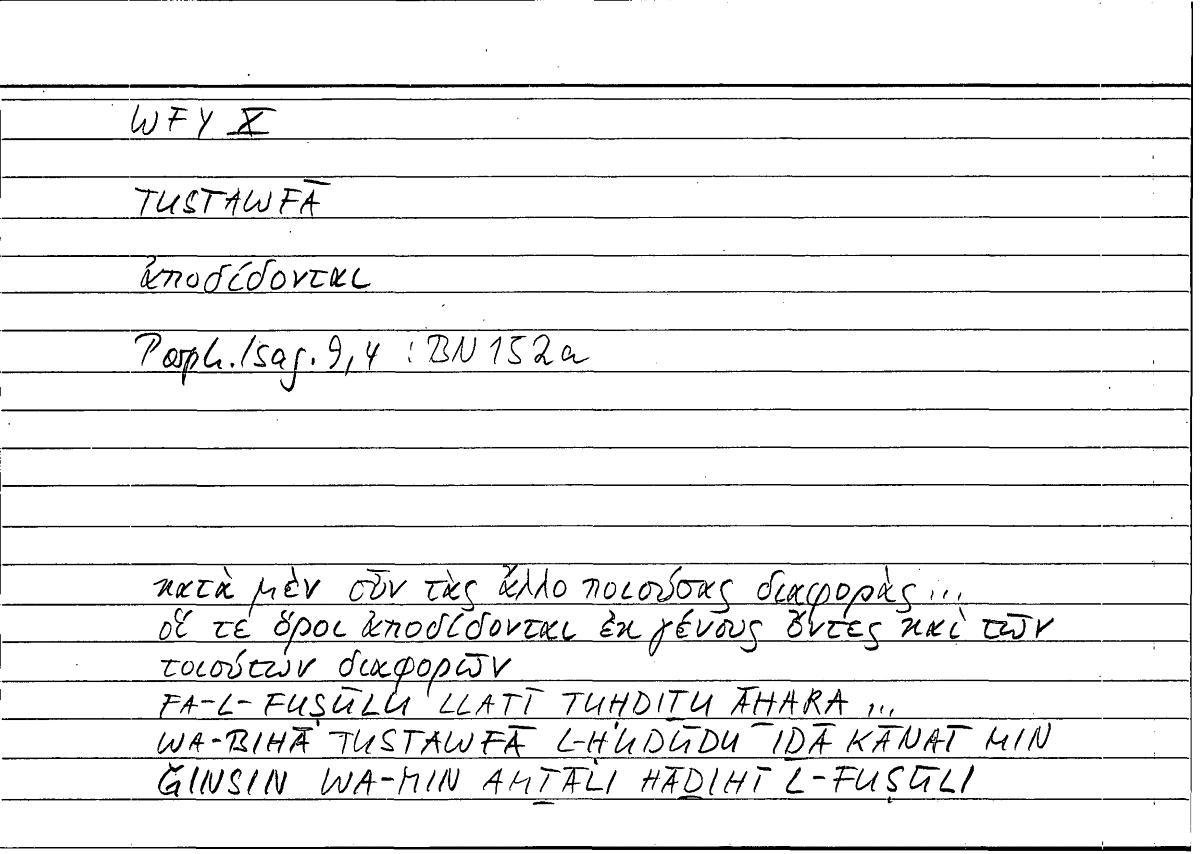 WFY X
TUSTAWFĀ
ἀποδίδονται
Porph. Isag. 9,4 : BN 152a
κατὰ μὲν οὖν τὰς ἄλλο ποιούσας διαφορὰς...
οἵ τε ὅροι ἀποδίδονται ἐκ γένους ὄντες καὶ τῶν
τοιούτων διαφορῶν
FA-L-FUṢŪLU LLATĪ TUḤDIṮU ĀḪARA ...
WA-BIHĀ TUSTAWFĀ L-ḤUDŪDU ˀIḎĀ KĀNAT MIN
ǦINSIN WA-MIN AMṮĀLI HĀḎIHĪ L-FUṢŪLI